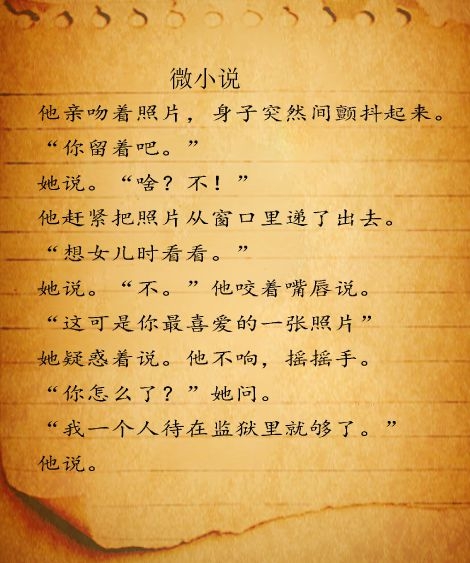 微小说
他亲吻着照片，身子突然间颤抖起来。
“你留着吧。”
她说。“啥？不！”
他赶紧把照片从窗口里递了出去。
“想女儿时看看。”
她说。“不。”他咬着嘴唇说。
“这可是你最喜爱的一张照片”
她疑惑着说。他不响，摇摇手。
“你怎么了？”她问。
“我一个人待在监狱里就够了。”
他说。